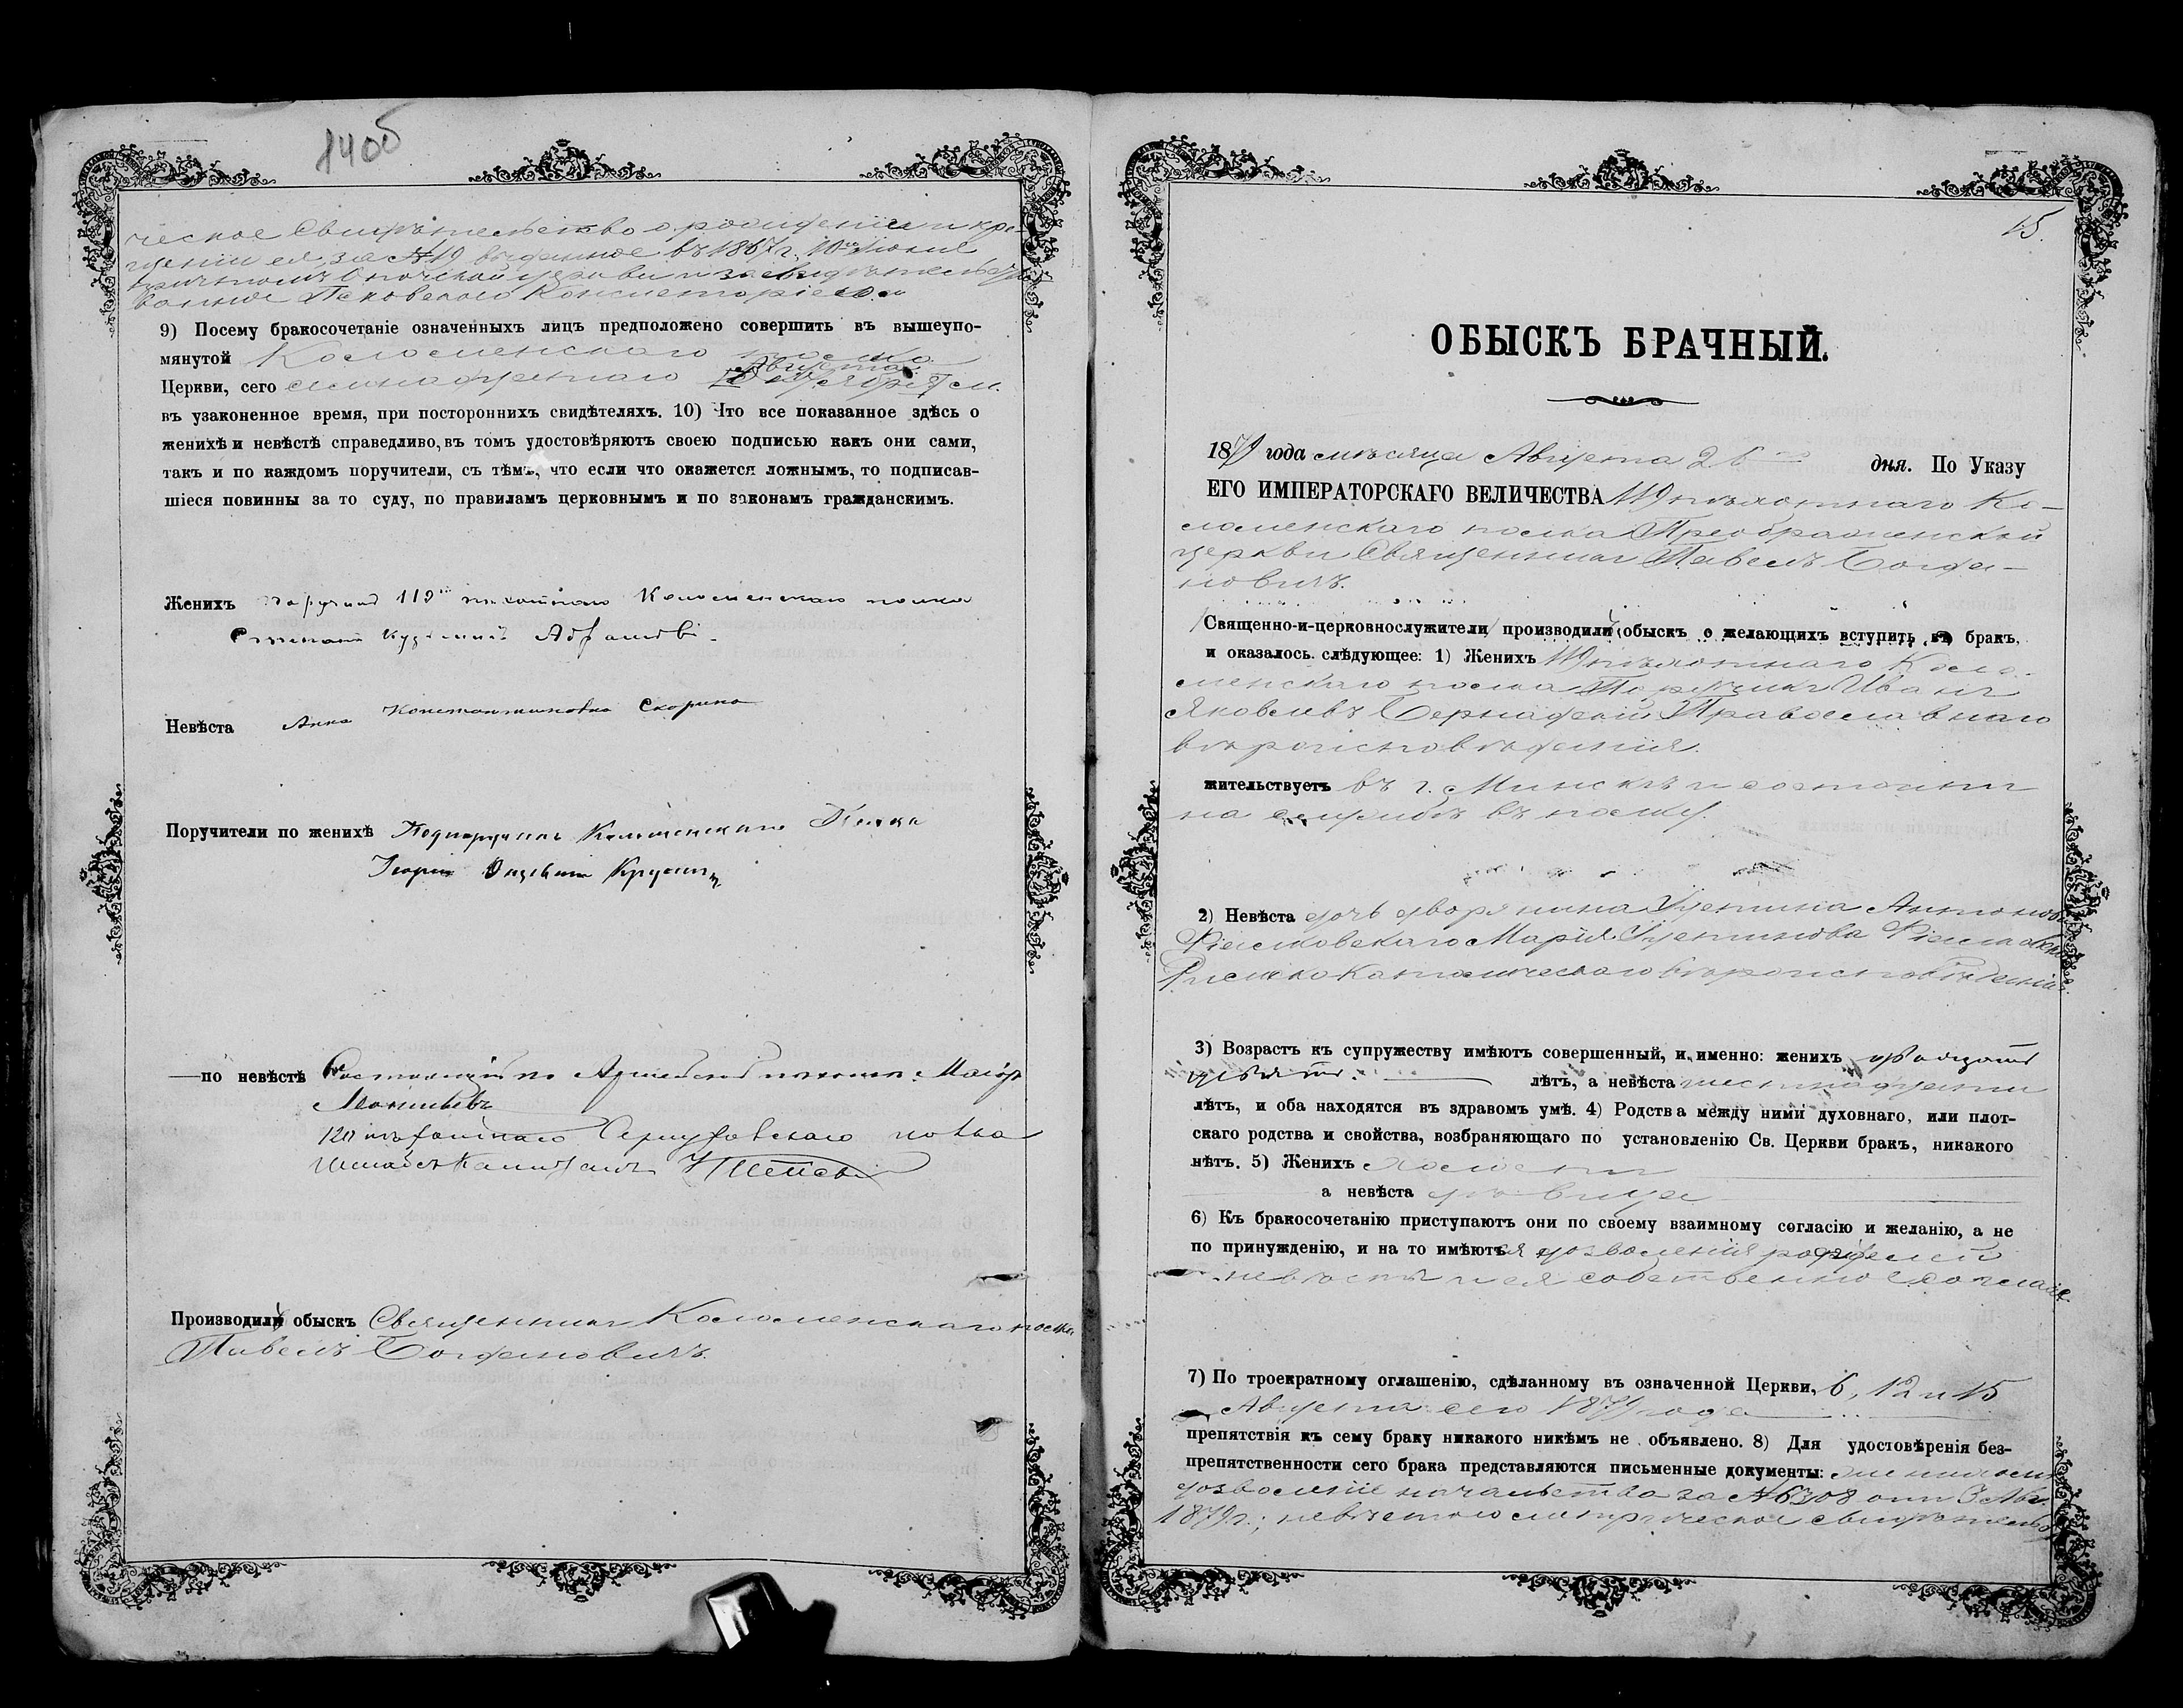 14об
ческое Свидѣтельство о рожденіи и кре-
щеніи ея за №19 выданное въ 1867 г. 10го Іюня
церкви и засвидѣтельство
ванное Псковскою Консисторіею.
9) Посему бракосочетаніе означенныхъ лицъ предположено совершить въ вышеупо-
мянутой Коломенскаго полка
Августа
Церкви, сего
въ узаконенное время, при постороннихъ свидѣтеляхъ. 10) Что все показанное здѣсь о
женихѣ и невѣстѣ справедливо, въ томъ удостовѣряютъ своею подписью какъ они сами,
такъ и по каждомъ поручители, съ тѣмъ, что если что окажется ложнымъ, то подписав-
шіеся повинны за то суду, по правиламъ церковнымъ и по законамъ гражданскимъ.
Женихъ Поручикъ 119го пѣхотнаго Коломенскаго полка
Степанъ Кузьмичъ Абрамовъ
Невѣста Анна Константиновна Скорина
Поручители по женихѣ Подпоручикъ Коломенскаго Полка
—по невѣстѣ Состоящій по Армейской пѣхотѣ Маіоръ
Леонтьевъ
120 пѣхотнаго Серпуховскаго полка
Штабсъ Капитанъ
Производилъ обыскъ Священникъ Коломенскаго полка
Павелъ Богдановичъ.
15.
ОБЫСКЪ БРАЧНЫЙ.
1879 года мѣсяца Августа 26го дня. По Указу
ЕГО ИМПЕРАТОРСКАГО ВЕЛИЧЕСТВА 119 пѣхотнаго Ко-
ломенскаго полка Преображенской
церкви Священникъ Павелъ Богда-
новичъ.
/Священно-и-церковнослужители/ производилъ обыскъ о желающихъ вступить въ бракъ,
и оказалось слѣдующее: 1) Женихъ 119 пѣхотнаго Коло-
менскаго полка Поручикъ Иванъ
Яковлевъ Бернадскій Православнаго
вѣроисповѣданія.
жительствуетъ въ г. Минскѣ и состоитъ
на службѣ въ полку.
2) Невѣста дочь дворянина Антонова
Марія
Римско Католическаго вѣроисповѣданія.
3) Возрастъ къ супружеству имѣютъ совершенный, и именно: женихъ двадцати
девяти лѣтъ, а невѣста шестнадцати
лѣтъ, и оба находятся въ здравомъ умѣ. 4) Родства между ними духовнаго, или плот-
скаго родства и свойства, возбраняющаго по установленію Св. Церкви бракъ, никакого
нѣтъ. 5) Женихъ холостъ
а невѣста дѣвица
6) Къ бракосочетанію приступаютъ они по своему взаимному согласію и желанію, а не
по принужденію, и на то имѣютъся дозволенія родителей
невѣсты и ея собственное согласіе
7) По троекратному оглашенію, сдѣланному въ означенной Церкви, 6, 12 и 15
Августа сего 1879 года
препятствія къ сему браку никакого никѣмъ не объявлено. 8) Для удостовѣренія без-
препятственности сего брака представляются письменные документы: женихомъ
дозволеніе начальства за №6308 отъ 3 Авг.
1879 г.; невѣстою метрическое свидѣтельство